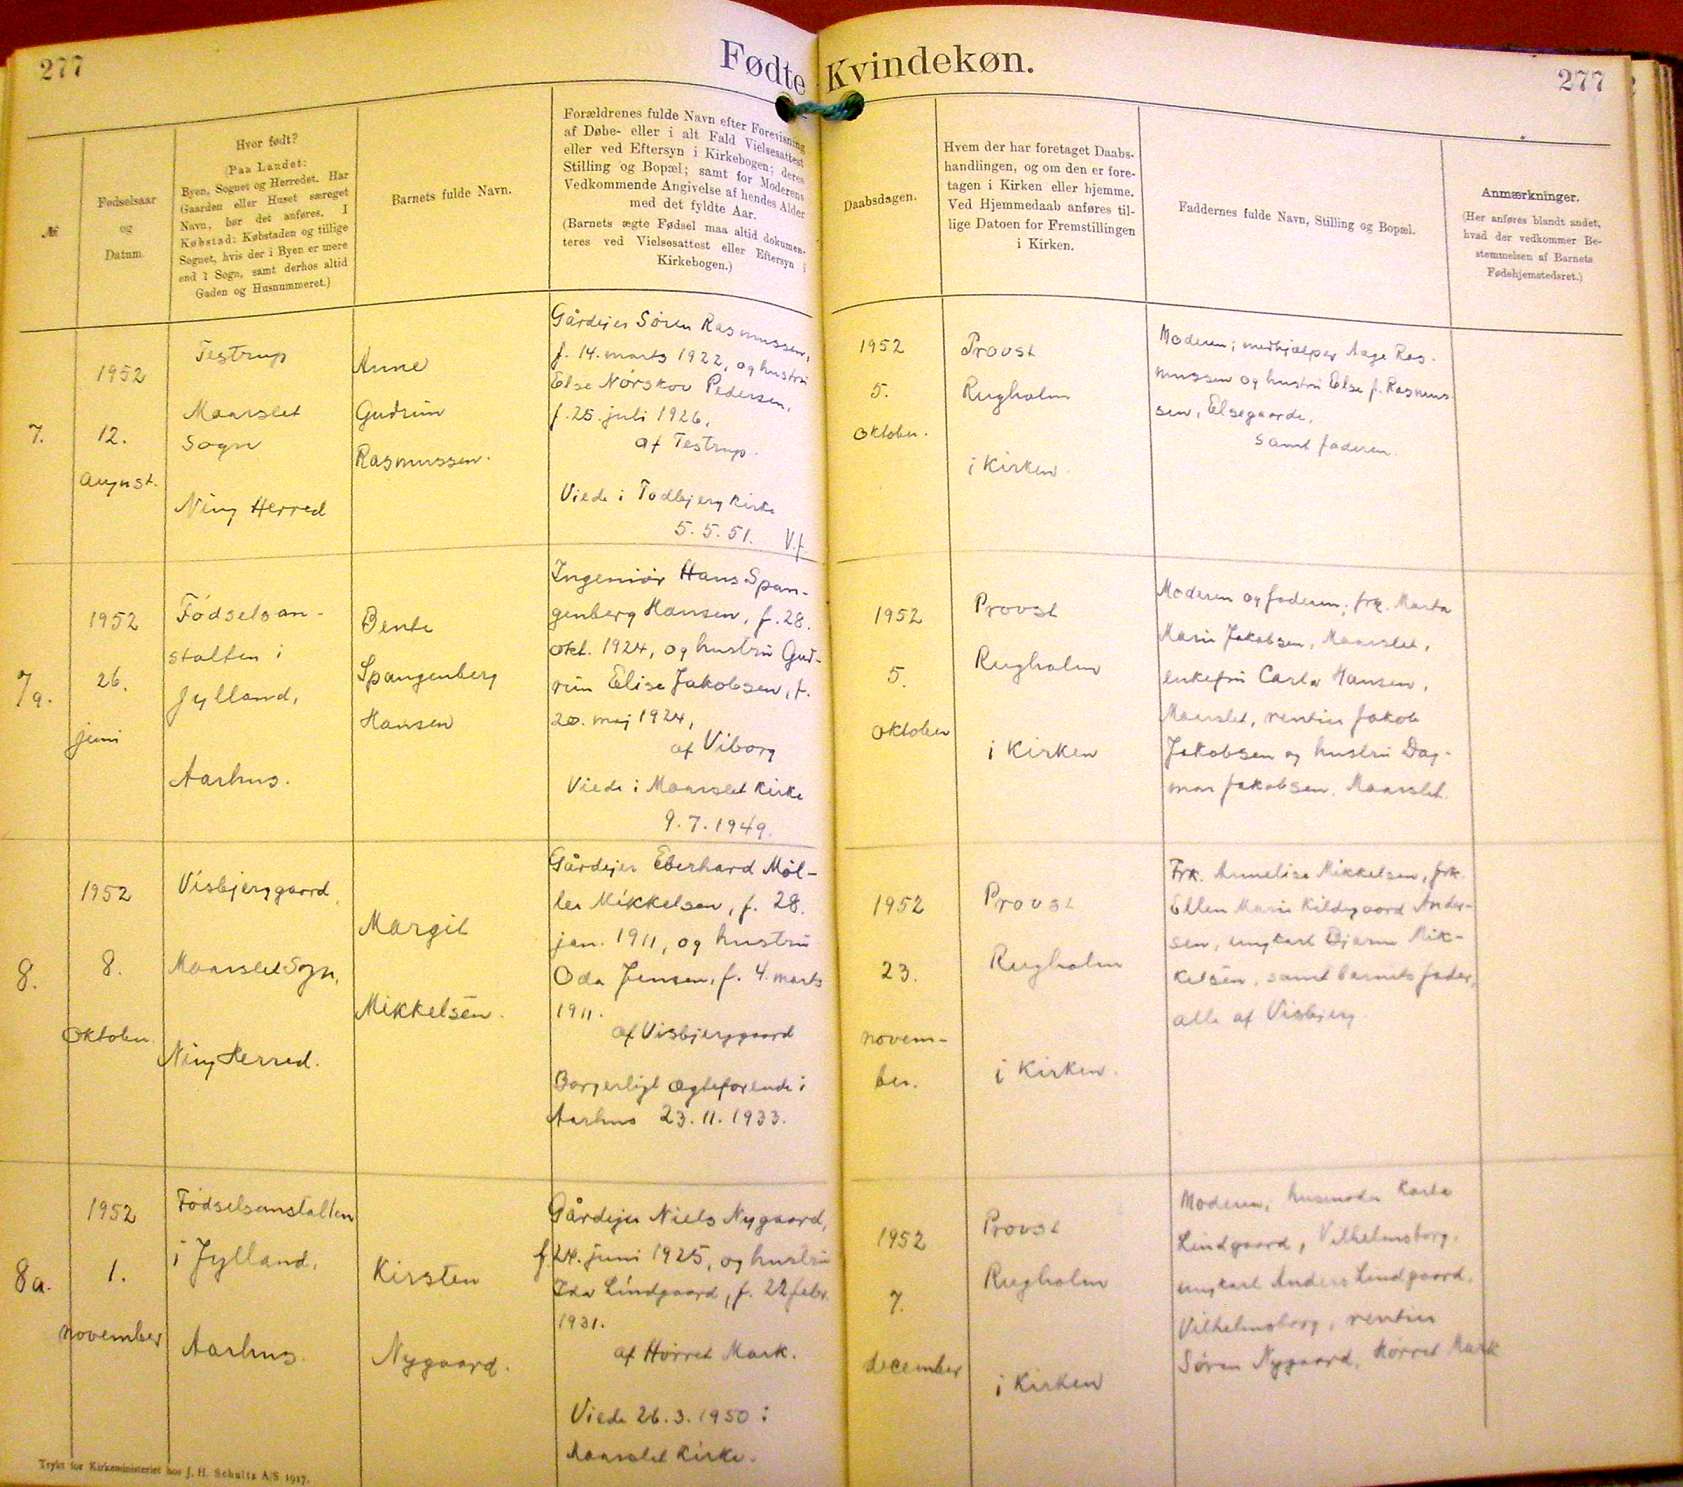 277
Fødte Kvindekøn.
277
№
Fødselsaar
og
Datum
Hvor født?
(Paa Landet:
Byen, Sognet og Herredet. Har
Gaarden eller Huset særeget
Navn, bør det anføres. I
Købstad: Købstaden og tillige
Sognet, hvis der i Byen er mere
end 1 Sogn, samt derhos altid
Gaden og Husnummeret.)
Barnets fulde Navn.
Forældrenes fulde Navn efter Forevisning
af Døbe- eller i alt Fald Vielsesattest
eller ved Eftersyn i Kirkebogen; deres
Stilling og Bopæl; samt for Moderens
Vedkommende Angivelse af hendes Alder
med det fyldte Aar.
(Barnets ægte Fødsel maa altid dokumen-
teres ved Vielsesattest eller Eftersyn i
Kirkebogen.)
Daabsdagen.
Hvem der har foretaget Daabs-
handlingen, og om den er fore-
tagen i Kirken eller hjemme.
Ved Hjemmedaab anføres til-
lige Datoen for Fremstillingen
i Kirken.
Faddernes fulde Navn, Stilling og Bopæl.
Anmærkninger.
(Her anføres blandt andet,
hvad der vedkommer Be-
stemmelsen af Barnets
Fødehjemstedsret.)
7.
1952
12.
august.
Testrup
Maarslet
Sogn
Ning Herred
Anne
Gudrun
Rasmussen.
Gårdejer Søren Rasmussen,
f. 14. marts 1922, og hustru
Else Nørskov Pedersen,
f. 25. juli 1926,
af Testrup.
Viede i Todbjerg Kirke
5.5.51. V.f.
1952
5.
oktober.
Provst
Rugholm
i Kirken.
Moderen; medhjælper Aage Ras-
mussen og hustru Else f. Rasmus-
sen, Elsegaarde,
samt faderen.
7a.
1952
26.
juni
Fødselsan-
stalten i
Jylland,
Aarhus.
Bente
Spangenberg
Hansen
Ingeniør Hans Span-
genberg Hansen, f. 28.
okt. 1924, og hustru Gud-
run Elise Jakobsen, f.
20. maj 1924,
af Viborg
Viede i Maarslet Kirke
9.7.1949.
1952
5.
oktober
Provst
Rugholm
i Kirken
Moderen og faderen; frk. Marta
Marie Jakobsen, Maarslet,
enkefru Carla Hansen,
Maarslet, rentier Jakob
Jakobsen og hustru Dag-
mar Jakobsen, Maarslet.
8.
1952
8.
Oktober.
Visbjerggaard,
Maarslet Sogn,
Ning Herred.
Margit
Mikkelsen.
Gårdejer Eberhard Møl-
ler Mikkelsen, f. 28.
jan. 1911, og hustru
Oda Jensen, f. 4. marts
1911.
af Visbjerggaard
Borgerligt ægteforende i
Aarhus 23.11.1933.
1952
23.
novem-
ber.
Provst
Rugholm
i Kirken.
Frk. Annelise Mikkelsen, frk.
Ellen Marie Kildegaard Ander-
sen, ungkarl Bjarne Mik-
kelsen, samt barnets fader,
alle af Visbjerg.
8a.
1952
1.
november
Fødselsanstalten
i Jylland,
Aarhus.
Kirsten
Nygaard.
Gårdejer Niels Nygaard,
f. 24. juni 1925, og hustru
Ida Lindgaard, f. 22 febr.
1931.
af Hørret Mark.
Viede 26.3.1950 i
Maarslet Kirke.
1952
7.
december
Provst
Rugholm
i Kirken
Moderen, husmoder Karla
Lindgaard, Vilhelmsborg,
ungkarl Anders Lindgaard,
Vilhelmsborg, rentier
Søren Nygaard, Hørret Mark
Trykt for Kirkeministeriet hos J. H. Schultz A/S 1917.